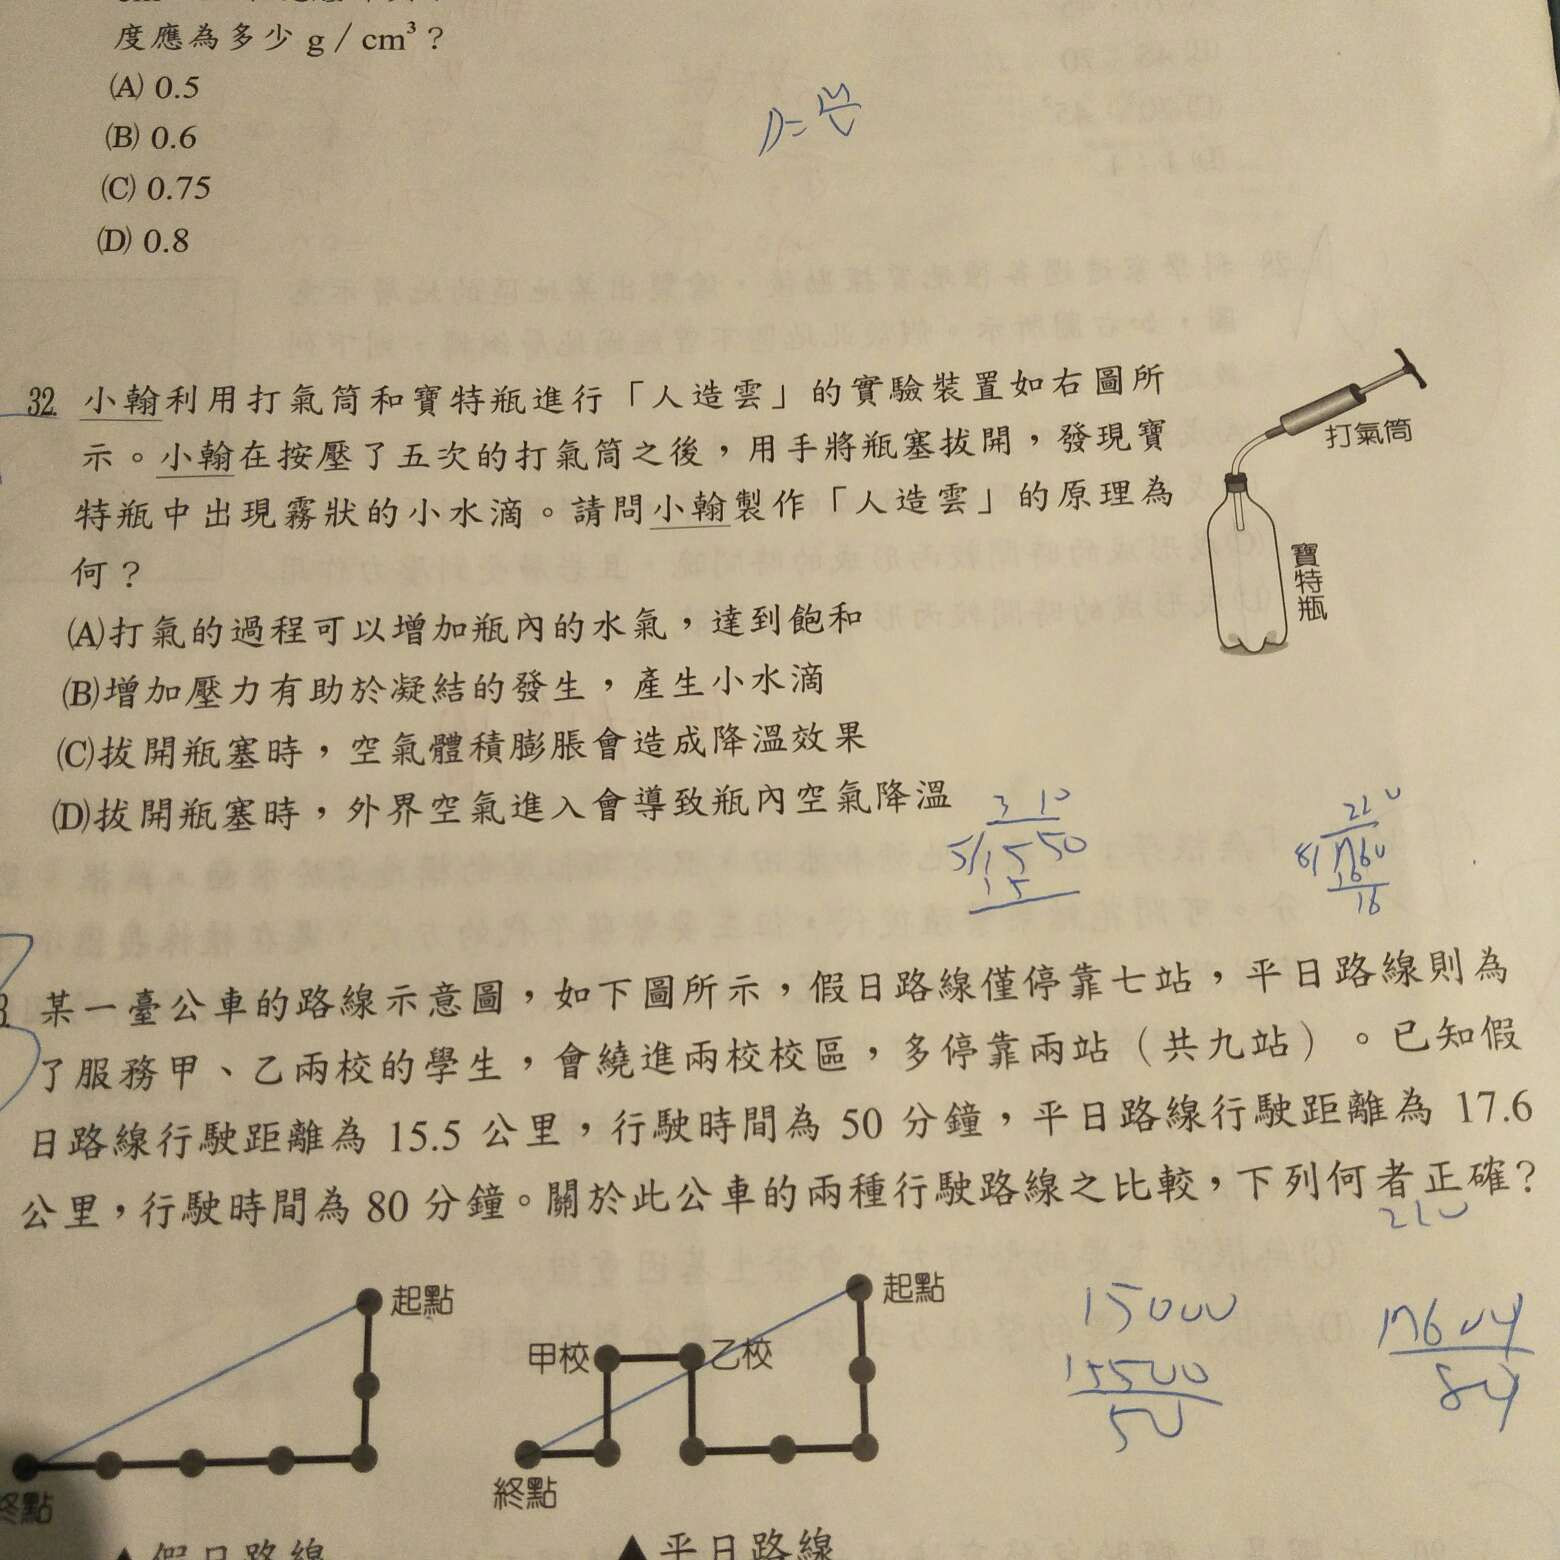 度應為多少 g / cm³？
(A) 0.5
(B) 0.6
(C) 0.75
(D) 0.8
D=M/V
32 小翰利用打氣筒和寶特瓶進行「人造雲」的實驗裝置如右圖所
示。小翰在按壓了五次的打氣筒之後，用手將瓶塞拔開，發現寶
特瓶中出現霧狀的小水滴。請問小翰製作「人造雲」的原理為
何？
打氣筒
寶特瓶
(A)打氣的過程可以增加瓶內的水氣，達到飽和
(B)增加壓力有助於凝結的發生，產生小水滴
(C)拔開瓶塞時，空氣體積膨脹會造成降溫效果
(D)拔開瓶塞時，外界空氣進入會導致瓶內空氣降溫
3 10
5/15 50
15
220
8/1760
16
16
某一臺公車的路線示意圖，如下圖所示，假日路線僅停靠七站，平日路線則為
了服務甲、乙兩校的學生，會繞進兩校校區，多停靠兩站（共九站）。已知假
日路線行駛距離為 15.5 公里，行駛時間為 50 分鐘，平日路線行駛距離為 17.6
公里，行駛時間為 80 分鐘。關於此公車的兩種行駛路線之比較，下列何者正確？
220
起點
終點
甲校
乙校
起點
終點
15000
15500
50
17600
80
▲假日路線
▲平日路線